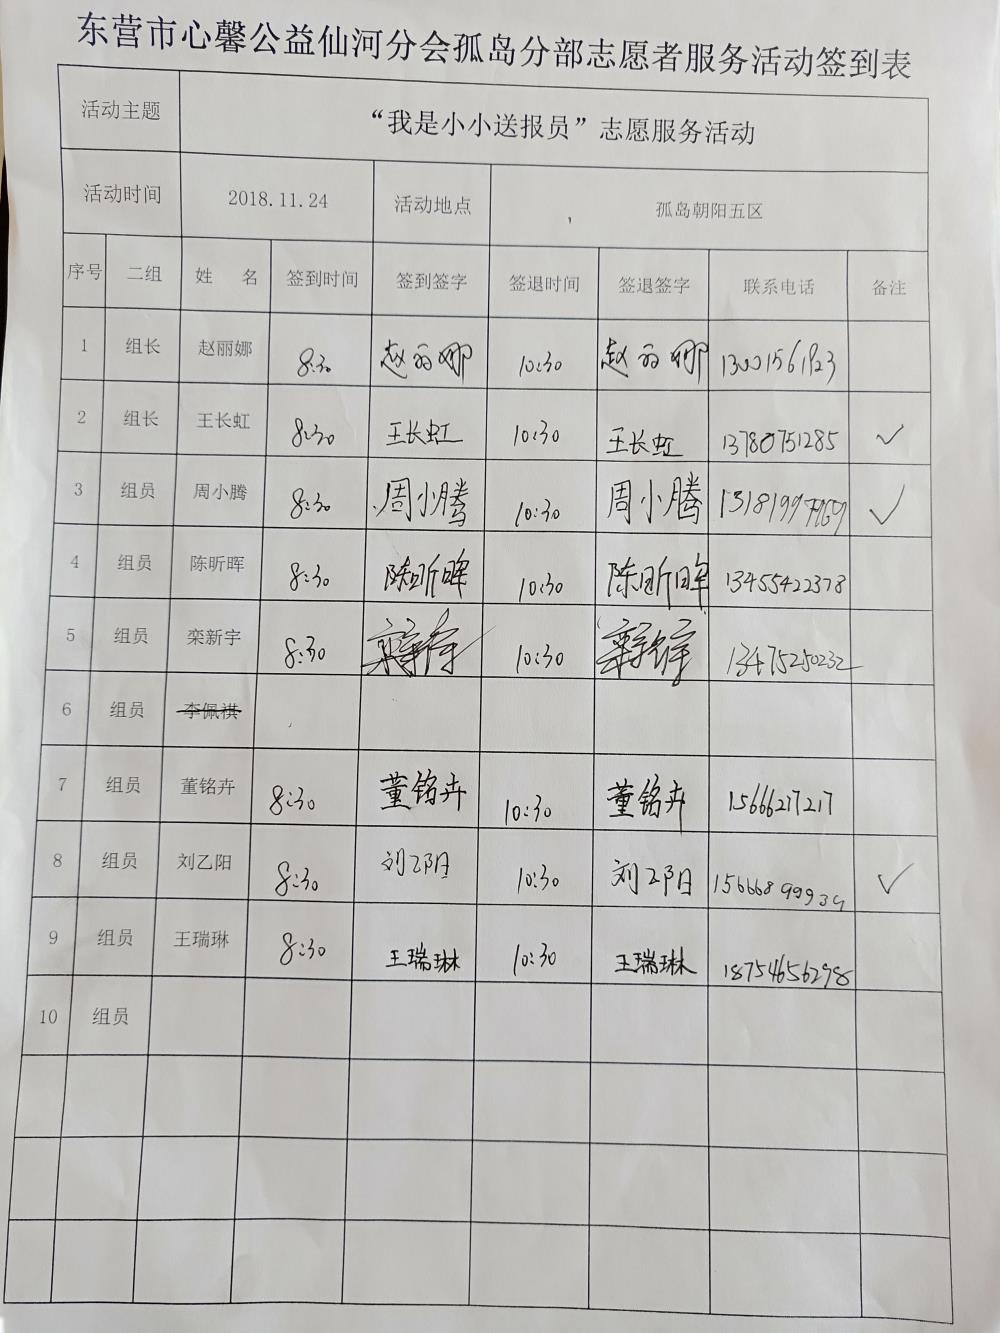 东营市心馨公益仙河分会孤岛分部志愿者服务活动签到表
活动主题 “我是小小送报员”志愿服务活动
活动时间 2018.11.24 活动地点 孤岛朝阳五区
序号 二组 姓 名 签到时间 签到签字 签退时间 签退签字 联系电话 备注
1 组长 赵丽娜 8:30 赵丽娜 10:30 赵丽娜 13001561923
2 组长 王长虹 8:30 王长虹 10:30 王长虹 13780751285 ✓
3 组员 周小腾 8:30 周小腾 10:30 周小腾 ✓
4 组员 陈昕晖 8:30 陈昕晖 10:30 陈昕晖 13455422378
5 组员 栾新宇 8:30 10:30 13475250232
6 组员 李佩祺
7 组员 董铭卉 8:30 董铭卉 10:30 董铭卉 15666217217
8 组员 刘乙阳 8:30 刘乙阳 10:30 刘乙阳 15666899939 ✓
9 组员 王瑞琳 8:30 王瑞琳 10:30 王瑞琳 18754656298
10 组员